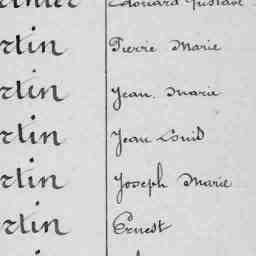 Edouard Gustave
rtin Pierre Marie
rtin Jean Marie
rtin Jean Louis
rtin Joseph Marie
rtin Ernest